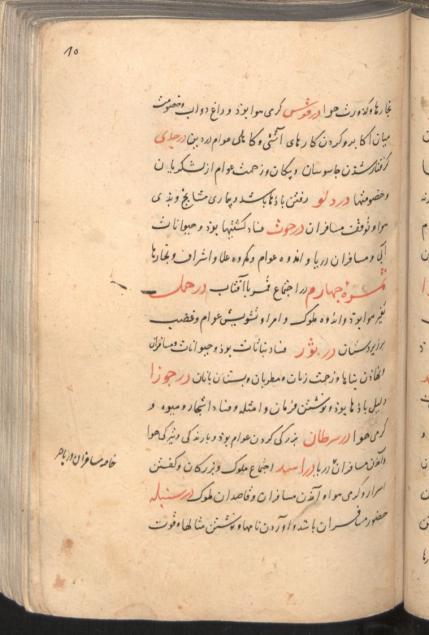 ۱۵
بخارها و کدورت هوا در قوس گرمی هوا بود و داغ دواب و خصومت
میان اکابر و کردن کارهای آتشی و کاهلی عوام در دین در جدی
گرفتار شدن جاسوسان و پیکان و زحمت عوام از لشکریان
و خصومتها در دلو رفتن بادها باشد و بیماری مشایخ و بدی
هوا و توقف مسافران در حوت فساد کشتیها بود و حیوانات
آبی و مسافران دریا و اندوه عوام و مکروه علما و اشراف و بخارها
ثمرهٔ چهارم در اجتماع قمر با آفتاب در حمل
تغیر هوا بود و اندوه ملوک و امرا و تشویش عوام و غضب
بر زیردستان در ثور فساد نباتات بود و حیوانات و مسافران
و بناها و زحمت زنان و مطربان و بستان بانان در جوزا
دلیل بادها بود و نوشتن فرمان و امثله و فساد اشجار و میوه و
گرمی هوا در سرطان بزرگی کردن عوام بود و بارندگی و تیرگی هوا
و آمدن مسافران دریا در اسد اجتماع ملوک و بزرگان و گفتن
خاصه مسافران دریا
اسرار و گرمی هوا و آمدن مسافران و قاصدان ملوک در سنبله
حضور مسافران باشد و آوردن نامها و نوشتن مثالها و فوت